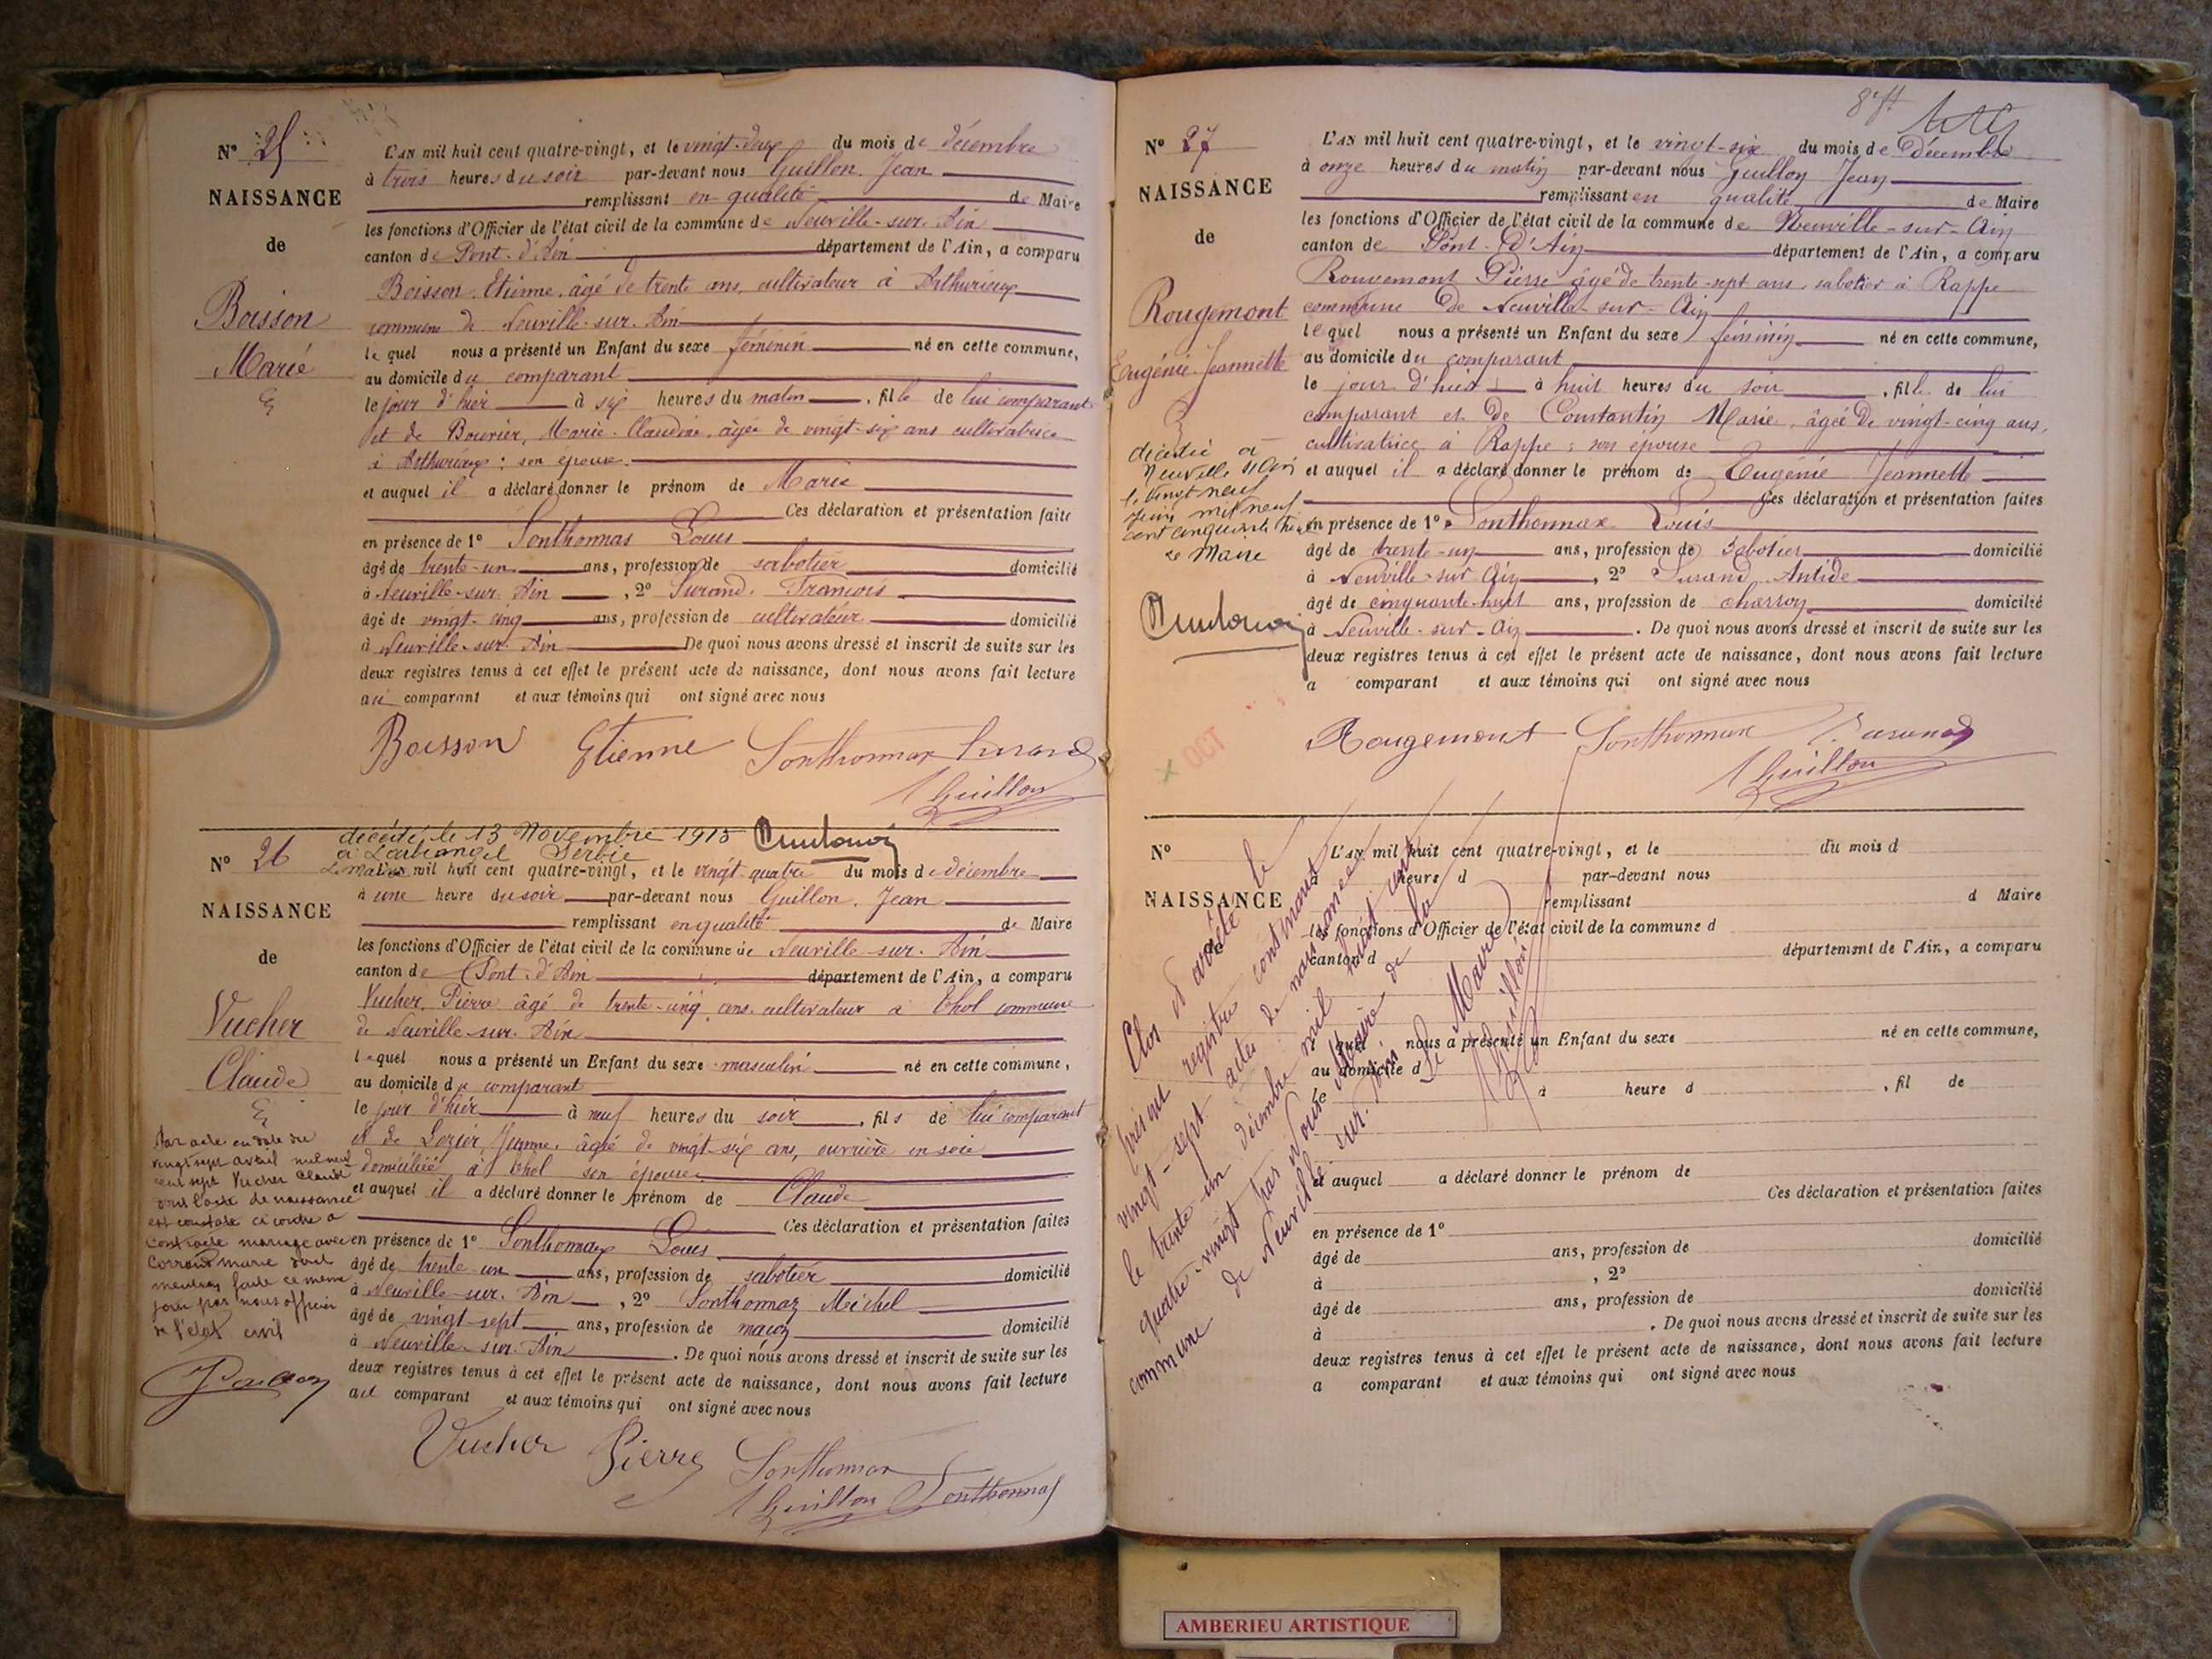 N° 25
NAISSANCE
de
Boisson
Marie
L'AN mil huit cent quatre-vingt, et le vingt-deux du mois de décembre
à trois heures du soir par-devant nous Guillon Jean
remplissant en qualité de Maire
les fonctions d'Officier de l'état civil de la commune de Neuville-sur-Ain
canton de Pont-d'Ain département de l'Ain, a comparu
Boisson Etienne, âgé de trente ans, cultivateur à
commune de Neuville-sur-Ain
lequel nous a présenté un Enfant du sexe féminin né en cette commune,
au domicile du comparant
le jour d'hier à six heures du matin, fille de lui comparant
et de Bouvier, Marie-Claudine, âgée de vingt-six ans cultivatrice
à son épouse
et auquel il a déclaré donner le prénom de Marie
Ces déclaration et présentation faite
en présence de 1° Sonthonnax Louis
âgé de trente-un ans, profession de sabotier domicilié
à Neuville-sur-Ain, 2° Durand François
âgé de vingt-cinq ans, profession de cultivateur domicilié
à Neuville-sur-Ain De quoi nous avons dressé et inscrit de suite sur les
deux registres tenus à cet effet le présent acte de naissance, dont nous avons fait lecture
au comparant et aux témoins qui ont signé avec nous
Boisson Etienne Sonthonnax Durand
Guillon
décédé le 13 Novembre 1915
à Serbie
N° 26
NAISSANCE
de
Vucher
Claude
L'AN mil huit cent quatre-vingt, et le vingt-quatre du mois de décembre
à une heure du soir par-devant nous Guillon Jean
remplissant en qualité de Maire
les fonctions d'Officier de l'état civil de la commune de Neuville-sur-Ain
canton de Pont-d'Ain département de l'Ain, a comparu
Vucher Pierre âgé de trente-cinq ans, cultivateur à Thol commune
de Neuville-sur-Ain
lequel nous a présenté un Enfant du sexe masculin né en cette commune,
au domicile du comparant
le jour d'hier à neuf heures du soir, fils de lui comparant
et de Jeanne, âgée de vingt-six ans, ouvrière en soie
domiciliée à Thol son épouse
et auquel il a déclaré donner le prénom de Claude
Ces déclaration et présentation faites
en présence de 1° Sonthonnax Louis
âgé de trente-un ans, profession de sabotier domicilié
à Neuville-sur-Ain, 2° Sonthonnax Michel
âgé de vingt-sept ans, profession de maçon domicilié
à Neuville-sur-Ain. De quoi nous avons dressé et inscrit de suite sur les
deux registres tenus à cet effet le présent acte de naissance, dont nous avons fait lecture
au comparant et aux témoins qui ont signé avec nous
Vucher Pierre Sonthonnax
Guillon Sonthonnax
Par acte en date du
vingt sept avril mil neuf
cent sept Vucher Claude
dont l'acte de naissance
est constaté ci contre a
contracté mariage avec
marie dont
mention faite ce même
jour par nous officier
de l'état civil
N° 27
NAISSANCE
de
Rougemont
Eugénie Jeannette
L'AN mil huit cent quatre-vingt, et le vingt-six du mois de Décembre
à onze heures du matin par-devant nous Guillon Jean
remplissant en qualité de Maire
les fonctions d'Officier de l'état civil de la commune de Neuville-sur-Ain
canton de Pont-d'Ain département de l'Ain, a comparu
Rougemont Pierre âgé de trente-sept ans, sabotier à Rappe
commune de Neuville-sur-Ain
lequel nous a présenté un Enfant du sexe féminin né en cette commune,
au domicile du comparant
le jour d'hier à huit heures du soir, fille de lui
comparant et de Constantin Marie, âgée de vingt-cinq ans,
cultivatrice à Rappe ; son épouse
et auquel il a déclaré donner le prénom de Eugénie Jeannette
Ces déclaration et présentation faites
en présence de 1° Sonthonnax Louis
âgé de trente-un ans, profession de sabotier domicilié
à Neuville-sur-Ain, 2° Durand Antide
âgé de cinquante-huit ans, profession de charron domicilié
à Neuville-sur-Ain. De quoi nous avons dressé et inscrit de suite sur les
deux registres tenus à cet effet le présent acte de naissance, dont nous avons fait lecture
a comparant et aux témoins qui ont signé avec nous
Rougemont Sonthonnax Durand
Guillon
décédée à
Neuville s/Ain
le vingt neuf
mil neuf
cent cinquante
Le Maire
OCT
N°
NAISSANCE
de
L'AN mil huit cent quatre-vingt, et le du mois d
à heure d par-devant nous
remplissant d Maire
les fonctions d'Officier de l'état civil de la commune d
canton d département de l'Ain, a comparu
lequel nous a présenté un Enfant du sexe né en cette commune,
au domicile d
le à heure d , fil de
et auquel a déclaré donner le prénom de
Ces déclaration et présentation faites
en présence de 1°
âgé de ans, profession de domicilié
à , 2°
âgé de ans, profession de domicilié
à . De quoi nous avons dressé et inscrit de suite sur les
deux registres tenus à cet effet le présent acte de naissance, dont nous avons fait lecture
a comparant et aux témoins qui ont signé avec nous
Clos et arrêté le
présent registre contenant
vingt-sept actes de naissance
le trente-un décembre mil huit cent
quatre-vingt par Nous Maire de la
commune de Neuville-sur-Ain
Le Maire
Guillon
AMBERIEU ARTISTIQUE